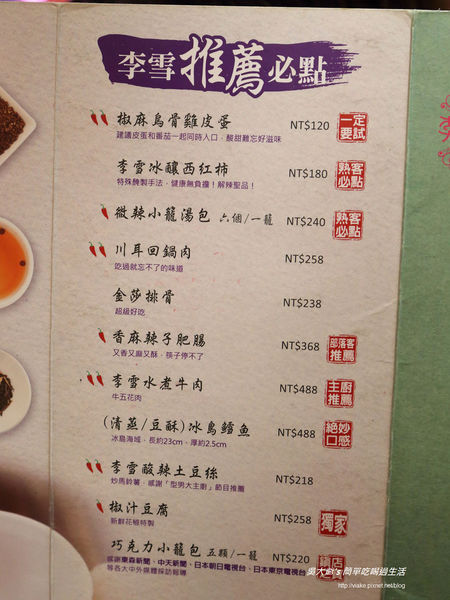 李雪推薦必點
椒麻烏骨雞皮蛋 NT$120 一定要試
建議皮蛋和番茄一起同時入口，酸甜難忘好滋味
李雪冰釀西紅柿 NT$180 熟客必點
特殊醃製手法，健康無負擔！解辣聖品！
微辣小籠湯包 六個/一籠 NT$240 熟客必點
川耳回鍋肉 NT$258
吃過就忘不了的味道
金莎排骨 NT$238
超級好吃
香麻辣子肥腸 NT$368 部落客推薦
又香又麻又酥，筷子停不了
李雪水煮牛肉 NT$488 主廚推薦
牛五花肉
(清蒸/豆酥)冰島鱈魚 NT$488 絕妙口感
冰島海域，長約23cm，厚約2.5cm
李雪酸辣土豆絲 NT$218
炒馬鈴薯，感謝「型男大主廚」節目推薦
椒汁豆腐 NT$258 獨家
新鮮花椒特製
巧克力小籠包 五顆/一籠 NT$220 店
感謝東森新聞、中天新聞、日本朝日電視台、日本東京電視台
等各大中外媒體採訪報導
吳大妮's簡單吃喝過生活
http://viake.pixnet.net/blog